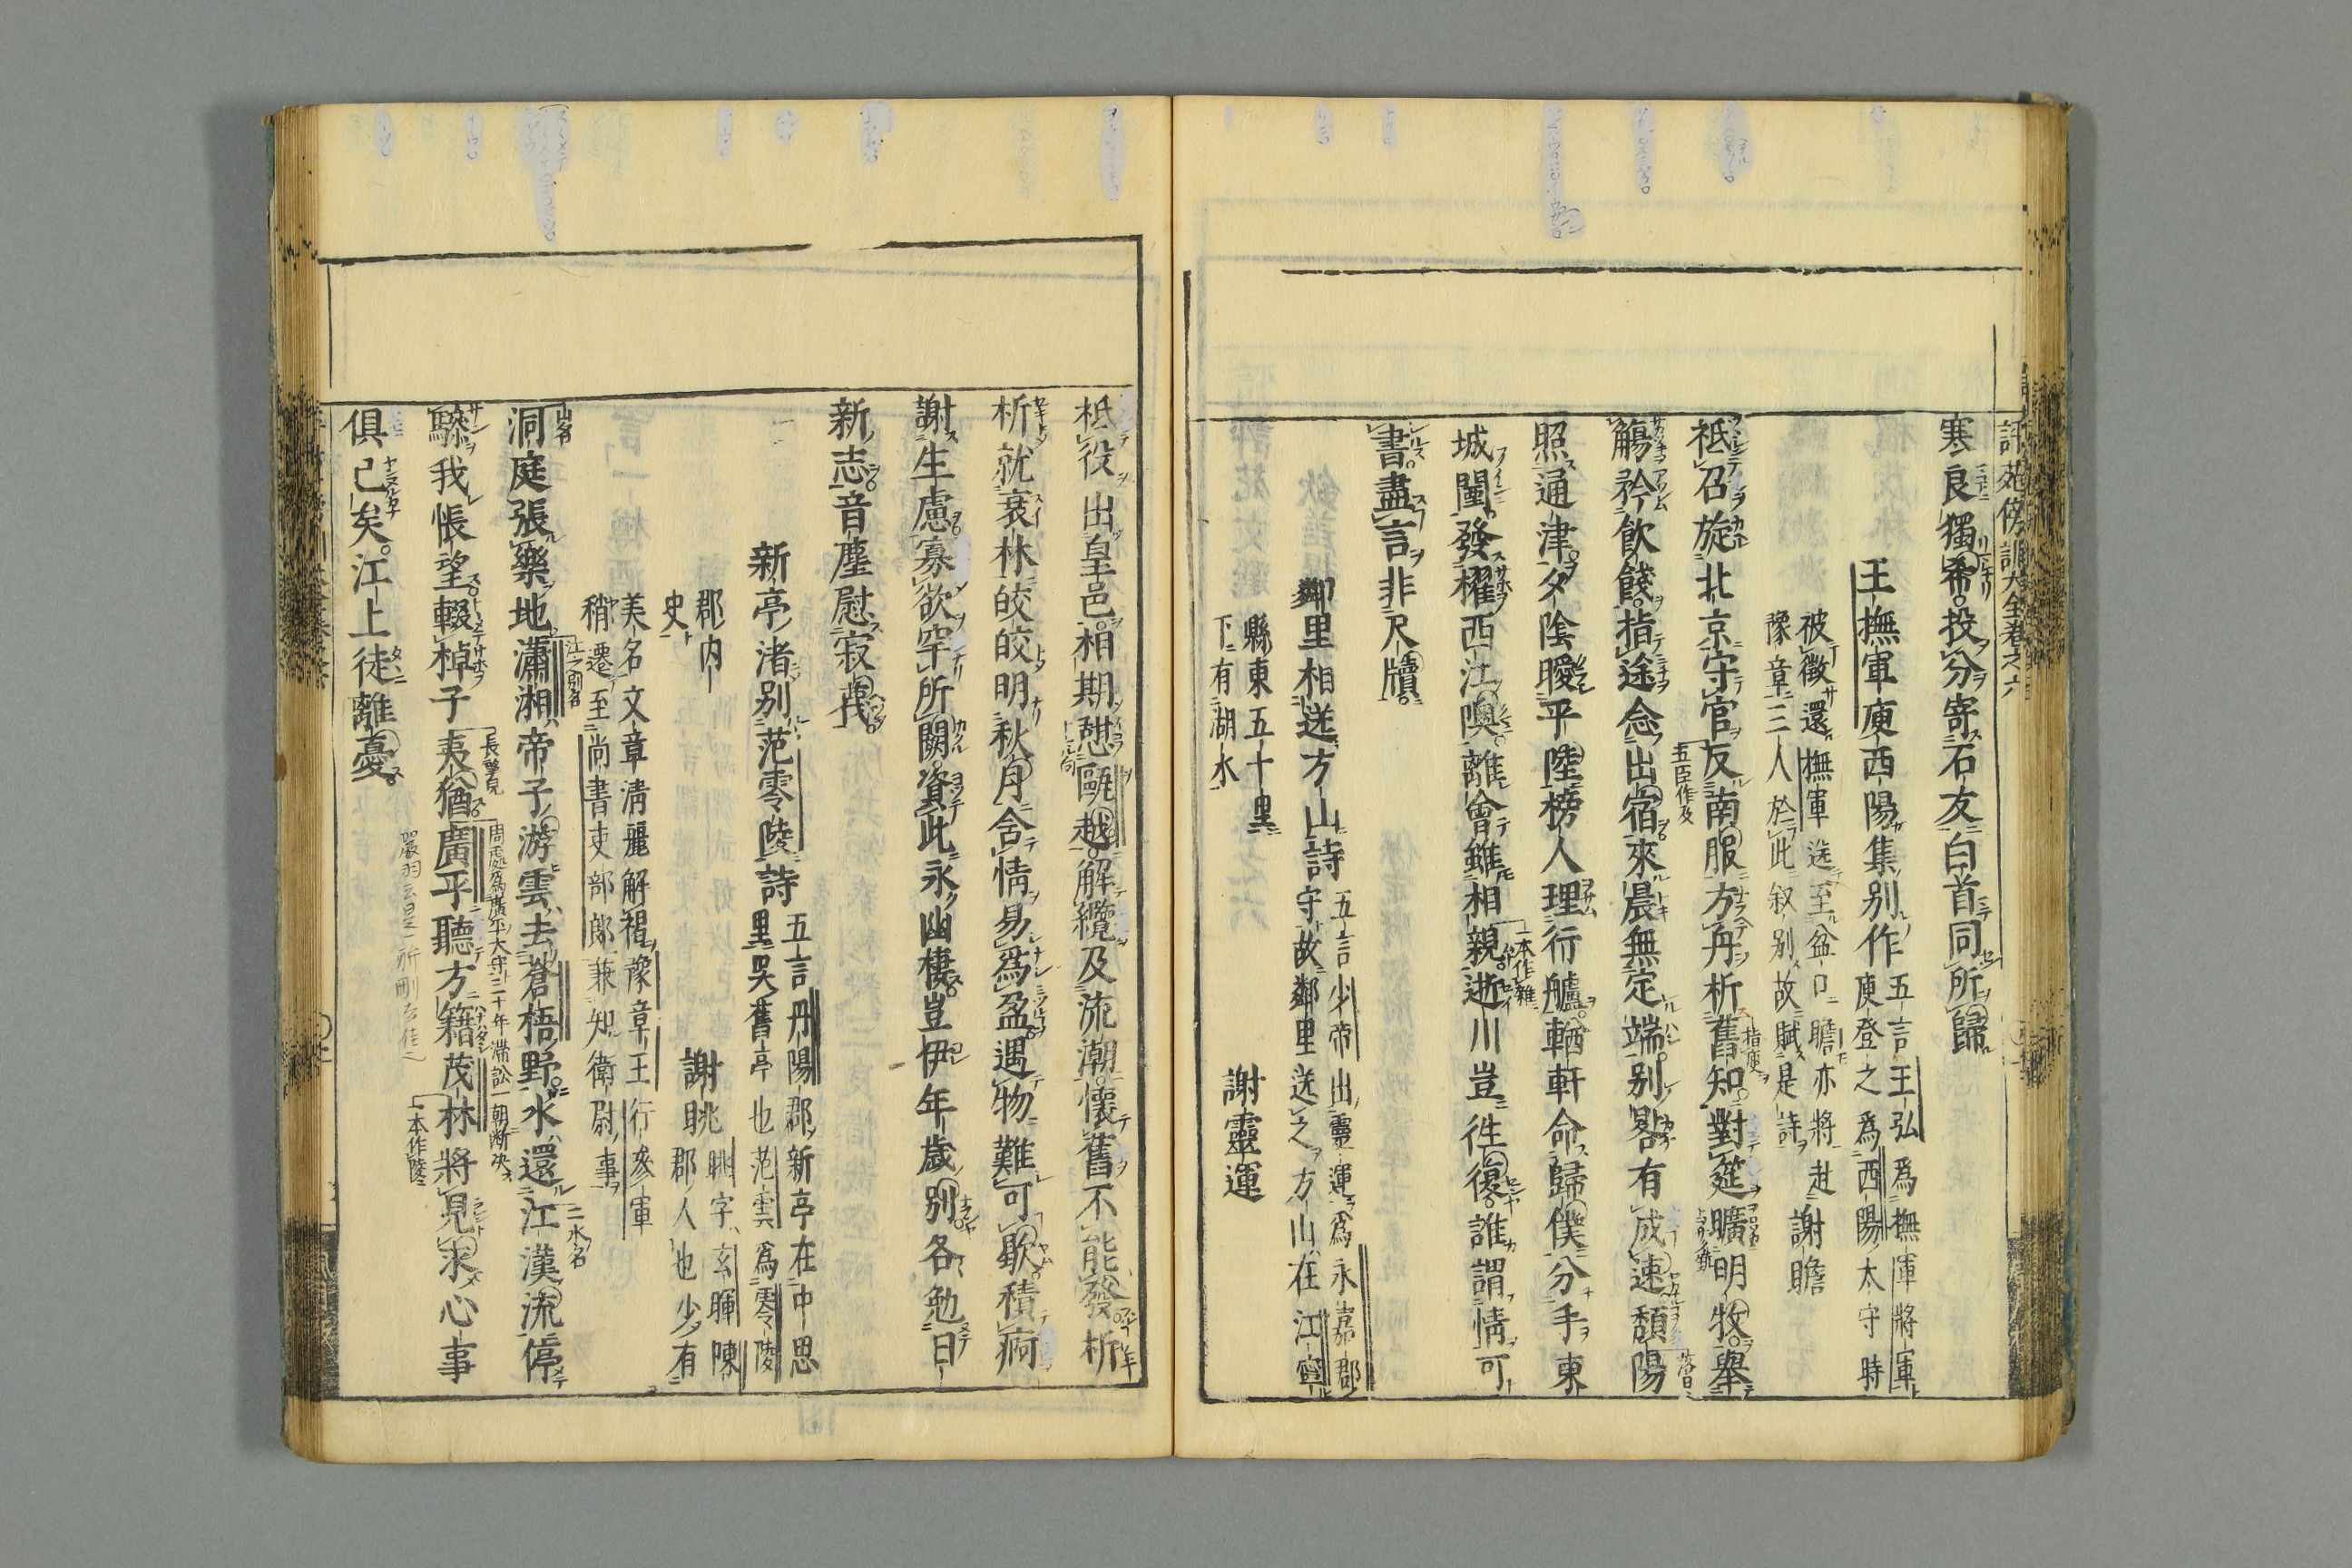 寒良獨希投分寄石友白首同所歸
王撫軍庾西陽集別作
五言王弘爲撫軍將軍
庾登之爲西陽太守時
被徵還撫軍送至盆口瞻亦將赴
豫章三人於此叙別故賦是詩
謝瞻
祗召旋北京守官反南服方舟析舊知對筵曠明牧舉
五臣作及
指庾
觴矜飲餞指途念出宿來晨無定端別晷有成速頹陽
落日
照通津夕陰曖平陸榜人理行艫輶軒命歸僕分手東
城闉發櫂西江隩離會雖相親逝川豈往復誰謂情可
一本作雜
書盡言非尺牘
鄰里相送方山詩
五言少帝出靈運爲永嘉郡
守故鄰里送之方山在江寧
縣東五十里
下有湖水
謝靈運
袛役出皇邑相期憇甌越解纜及流潮懷舊不能發析
析就衰林皎皎明秋月含情易爲盈遇物難可歇積痾
謝生慮寡欲罕所闕資此永幽棲豈伊年歲別各勉日
新志音塵慰寂蔑
新亭渚別范零陵詩
五言丹陽郡新亭在中思
里吴舊亭也范雲爲零陵
郡内
史
謝眺
眺字玄暉陳
郡人也少有
美名文章清麗解褐豫章王行參軍
稍遷至尚書吏部郎兼知衛尉事
洞庭張樂地瀟湘帝子游雲去蒼梧野水還江漢流停
山名
江之別名
二水名
驂我悵望輟棹子夷猶廣平聽方籍茂林將見求心事
周處爲廣平太守三十年滯訟一朝断决
一本作陵
俱已矣江上徒離憂